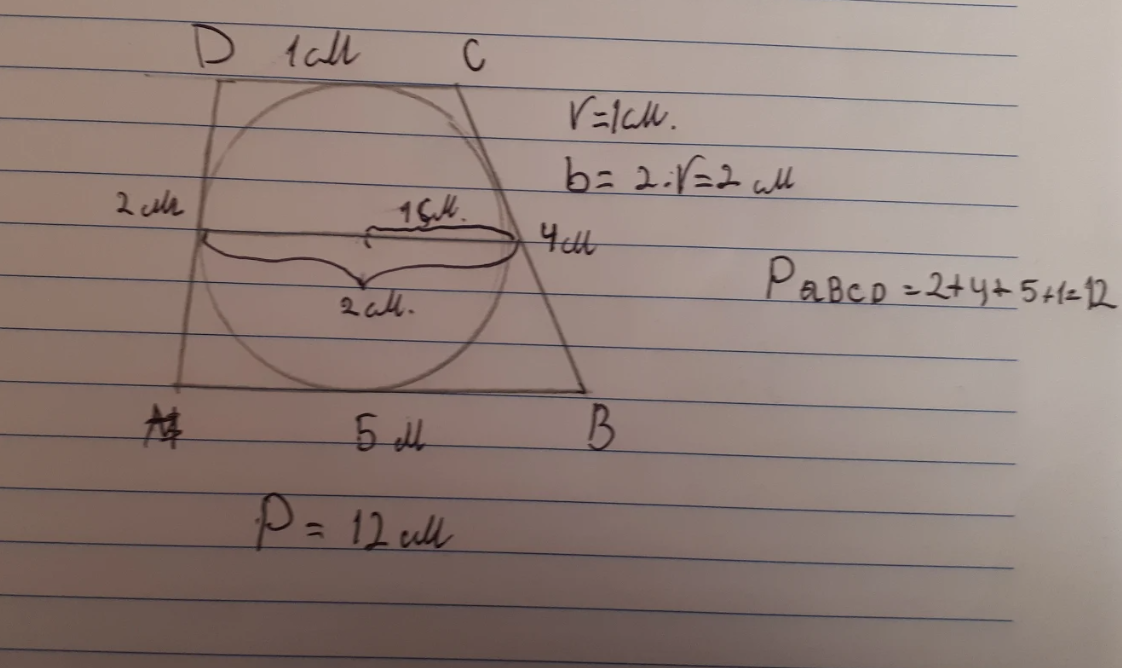 D 1см C
r=1см.
b= 2·r=2 см
2см
1см.
4см
2см.
P ABCD = 2+4+5+1=12
A 5 см B
P = 12 см